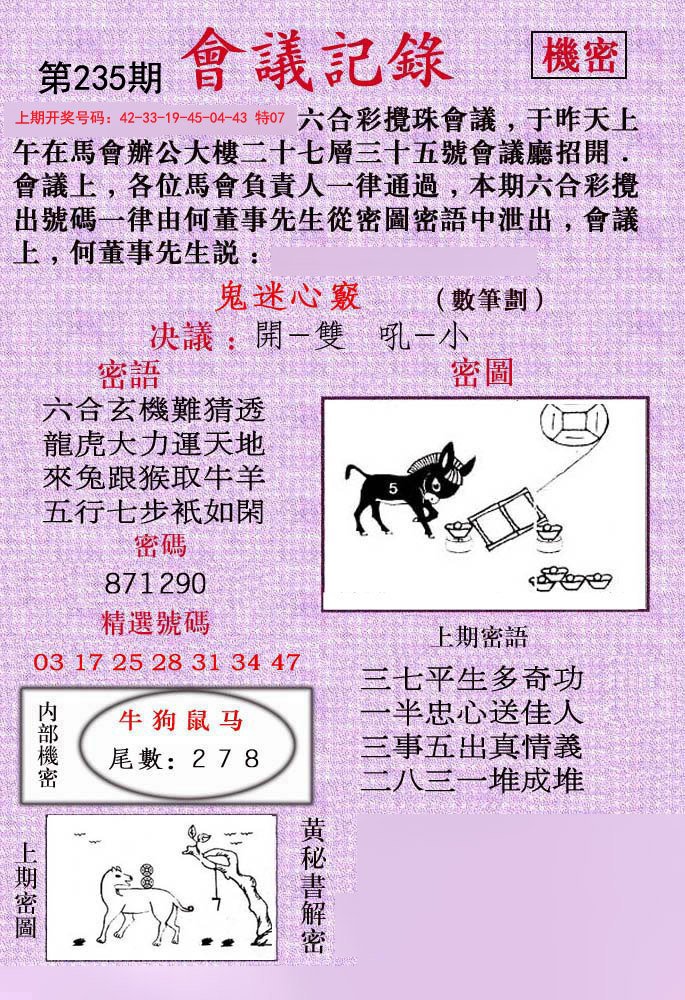 第235期
會議記錄
機密
上期开奖号码：42-33-19-45-04-43 特07
六合彩攪珠會議，于昨天上
午在馬會辦公大樓二十七層三十五號會議廳招開．
會議上，各位馬會負責人一律通過，本期六合彩攪
出號碼一律由何董事先生從密圖密語中泄出，會議
上，何董事先生説：
鬼迷心竅
（數筆劃）
决議：開－雙 吼－小
密語
六合玄機難猜透
龍虎大力運天地
來兔跟猴取牛羊
五行七步祇如閑
密碼
871290
精選號碼
03 17 25 28 31 34 47
密圖
5
内部機密
牛狗鼠马
尾數：2 7 8
上期密語
三七平生多奇功
一半忠心送佳人
三事五出真情義
二八三一堆成堆
上期密圖
7
黄秘書解密